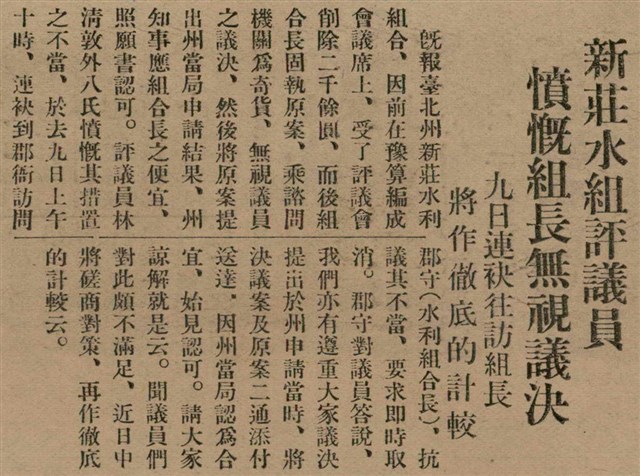 新莊水組評議員
憤慨組長無視議決
九日連袂往訪組長
將作徹底的計較
旣報臺北州新莊水利
組合、因前在豫算編成
會議席上、受了評議會
削除二千餘圓、而後組
合長固執原案、乘諮問
機關爲奇貨、無視議員
之議決、然後將原案提
出州當局申請結果、州
知事應組合長之便宜、
照願書認可。評議員林
淸敦外八氏憤慨其措置
之不當、於去九日上午
十時、連袂到郡衙訪問
郡守（水利組合長）、抗
議其不當、要求卽時取
消。郡守對議員答說、
我們亦有遵重大家議決
提出於州申請當時、將
決議案及原案二通添付
送達．因州當局認爲合
宜、始見認可。請大家
諒解就是云。聞議員們
對此頗不滿足、近日中
將磋商對策、再作徹底
的計較云。